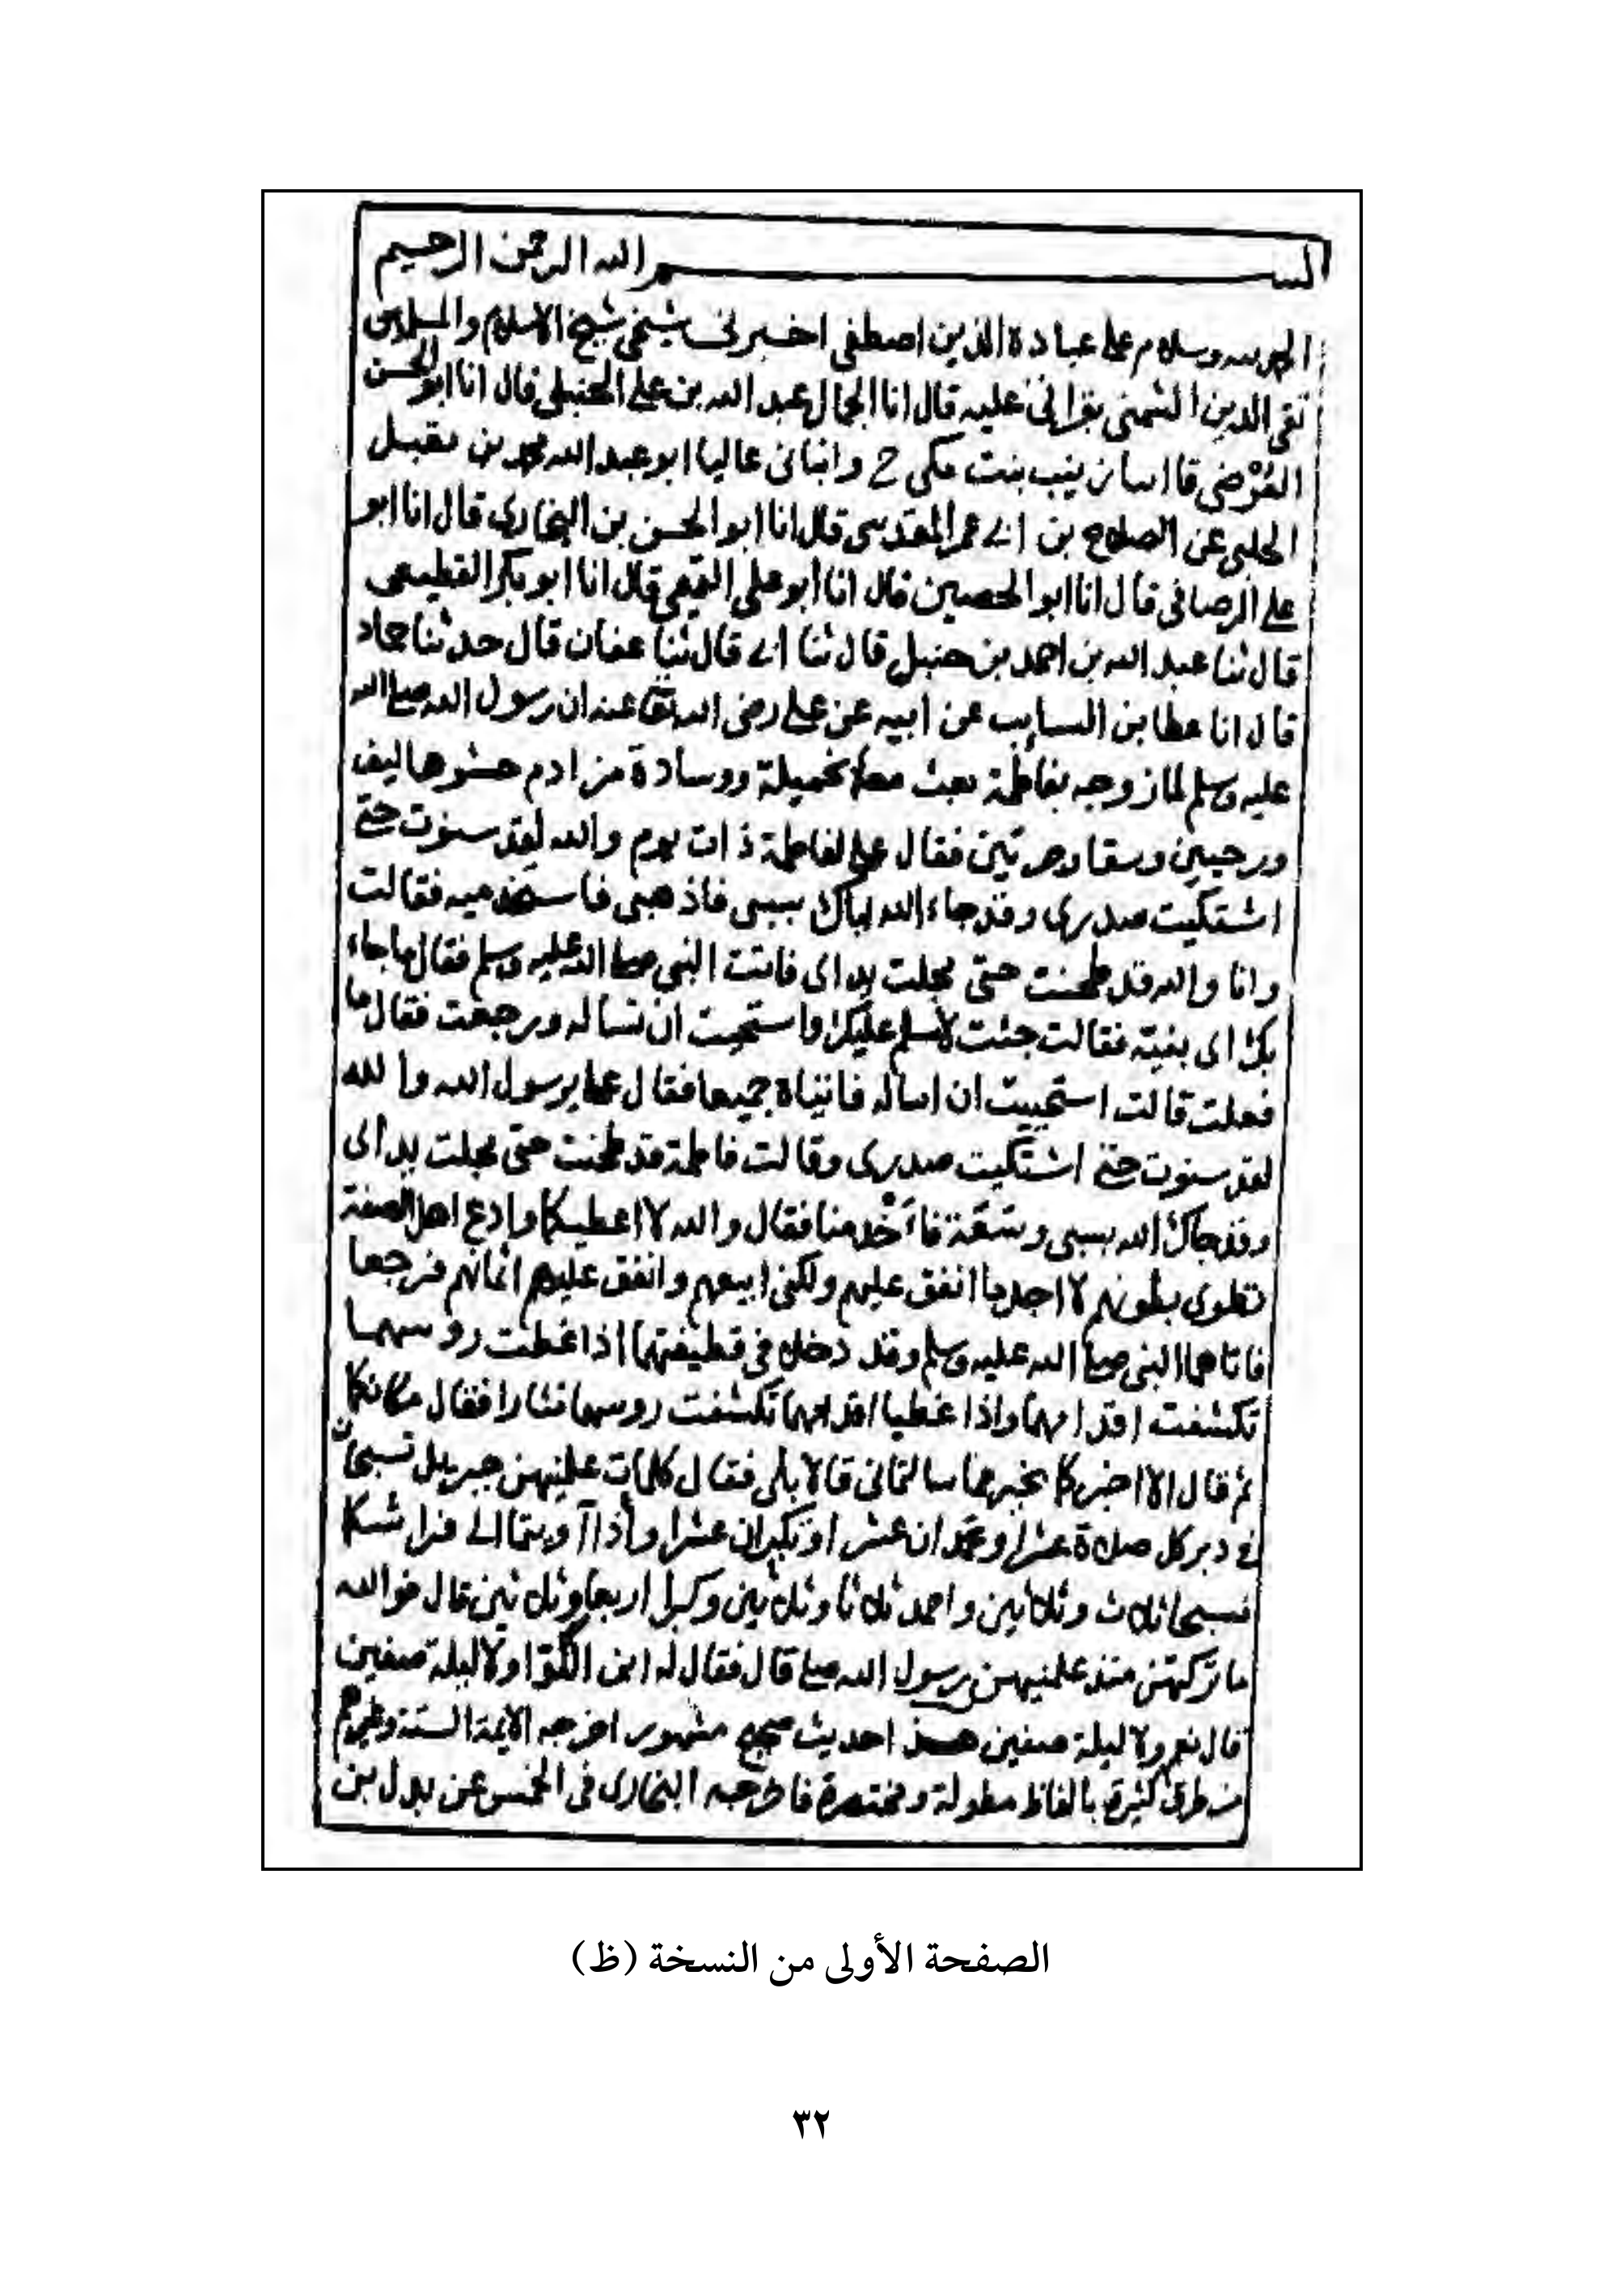 بسم الله الرحمن الرحيم
الحمد لله وسلام على عباده الذين اصطفى اخبرني شيخي شيخ الاسلام والمسلمين
تقى الدين الشمني بقراتى عليه قال انا الجمال عبد الله بن على الحنبلي قال انا ابو الحسن
العُرْضى قا انبا زينب بنت مكي ح وانبانى عاليا ابو عبد الله محمد بن مقبل
الحلبي عن الصلاح بن ابي عمر المقدسى قال انا ابو الحسن بن البخارى قال انا ابو
على الرصافى قال انا ابو الحصين قال انا ابو على التميمي قال انا ابو بكر القطيعى
قال ثنا عبد الله بن احمد بن حنبل قال ثنا ابى قال ثنا عفان قال حدثنا حماد
قال انا عطا بن السايب عن ابيه عن على رضى الله تعا عنه ان رسول الله صلى الله
عليه وسلم لما زوجه بفاطمة بعث معها بخميلة ووسادة من ادم حشوها ليف
ورحيين وسقا وجرتين فقال على لفاطمة ذات يوم والله لقد سنوت حتى
اشتكيت صدرى وقد جاء الله اباك بسبى فاذهبى فاستخدميه فقالت
وانا والله قد طحنت حتى مجلت يداى فاتت النبي صلى الله عليه وسلم فقال ما جاء
بك اى بنية فقالت جئت لاسلم عليك واستحيت ان تساله ورجعت فقال ما
فعلت قالت استحييت ان اساله فاتيناه جميعا فقال على يرسول الله والله
لقد سنوت حتى اشتكيت صدرى وقالت فاطمة قد طحنت حتى مجلت يداى
وقد جاك الله بسبى وسَعَة فاَخْدمنا فقال والله لا اعطيكما وادع اهل الصفة
تطوى بطونهم لا اجد ما انفق عليهم ولكنى ابيعهم وانفق عليهم اثمانهم فرجعا
فاتاهما النبى صلى الله عليه وسلم وقد دخلا في قطيفتهما اذا غطت روسهما
تكشفت اقدامهما واذا غطيا اقدامهما تكشفت روسهما فثارا فقال مكانكما
ثم قال الا اخبركما بخير مما سالتمانى قالا بلى فقال كلمات علمنيهن جبريل تسبحان
في دبر كل صلاة عشرا وتحمدان عشرا وتكبران عشرا وأذا آويتما الى فراشكما
فسبحا ثلاث وثلاثين واحمد ثلاثا وثلاثين وكبرا اربعا وثلاثين قال فوالله
ما تركتهن منذ علمنيهن رسول الله صلى قال فقال له ابن الكوّا ولا ليلة صفين
قال نعم ولا ليلة صفين هذا حديث صحيح مشهور اخرجه الايمة الستة وغيرهم
من طرق كثيرة بالفاظ مطولة ومختصرة فاخرجه البخارى فى الخمس عن بدل بن
الصفحة الأولى من النسخة (ظ)
٣٢